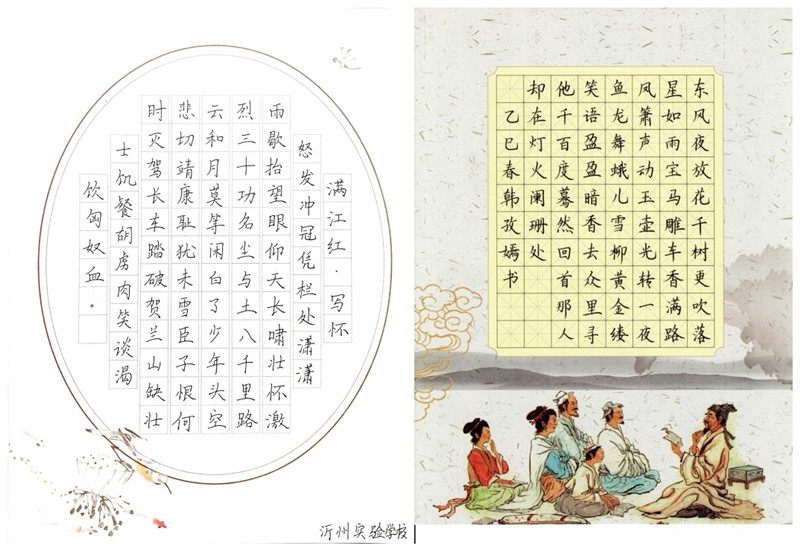 满江红·写怀
怒发冲冠凭栏处潇潇
雨歇抬望眼仰天长啸壮怀激
烈三十功名尘与土八千里路
云和月莫等闲白了少年头空
悲切靖康耻犹未雪臣子恨何
时灭驾长车踏破贺兰山缺壮
士饥餐胡虏肉笑谈渴
饮匈奴血。
沂州实验学校
东风夜放花千树更吹落
星如雨宝马雕车香满路
凤箫声动玉壶光转一夜
鱼龙舞蛾儿雪柳黄金缕
笑语盈盈暗香去众里寻
他千百度蓦然回首那人
却在灯火阑珊处
乙巳春韩孜嫣书